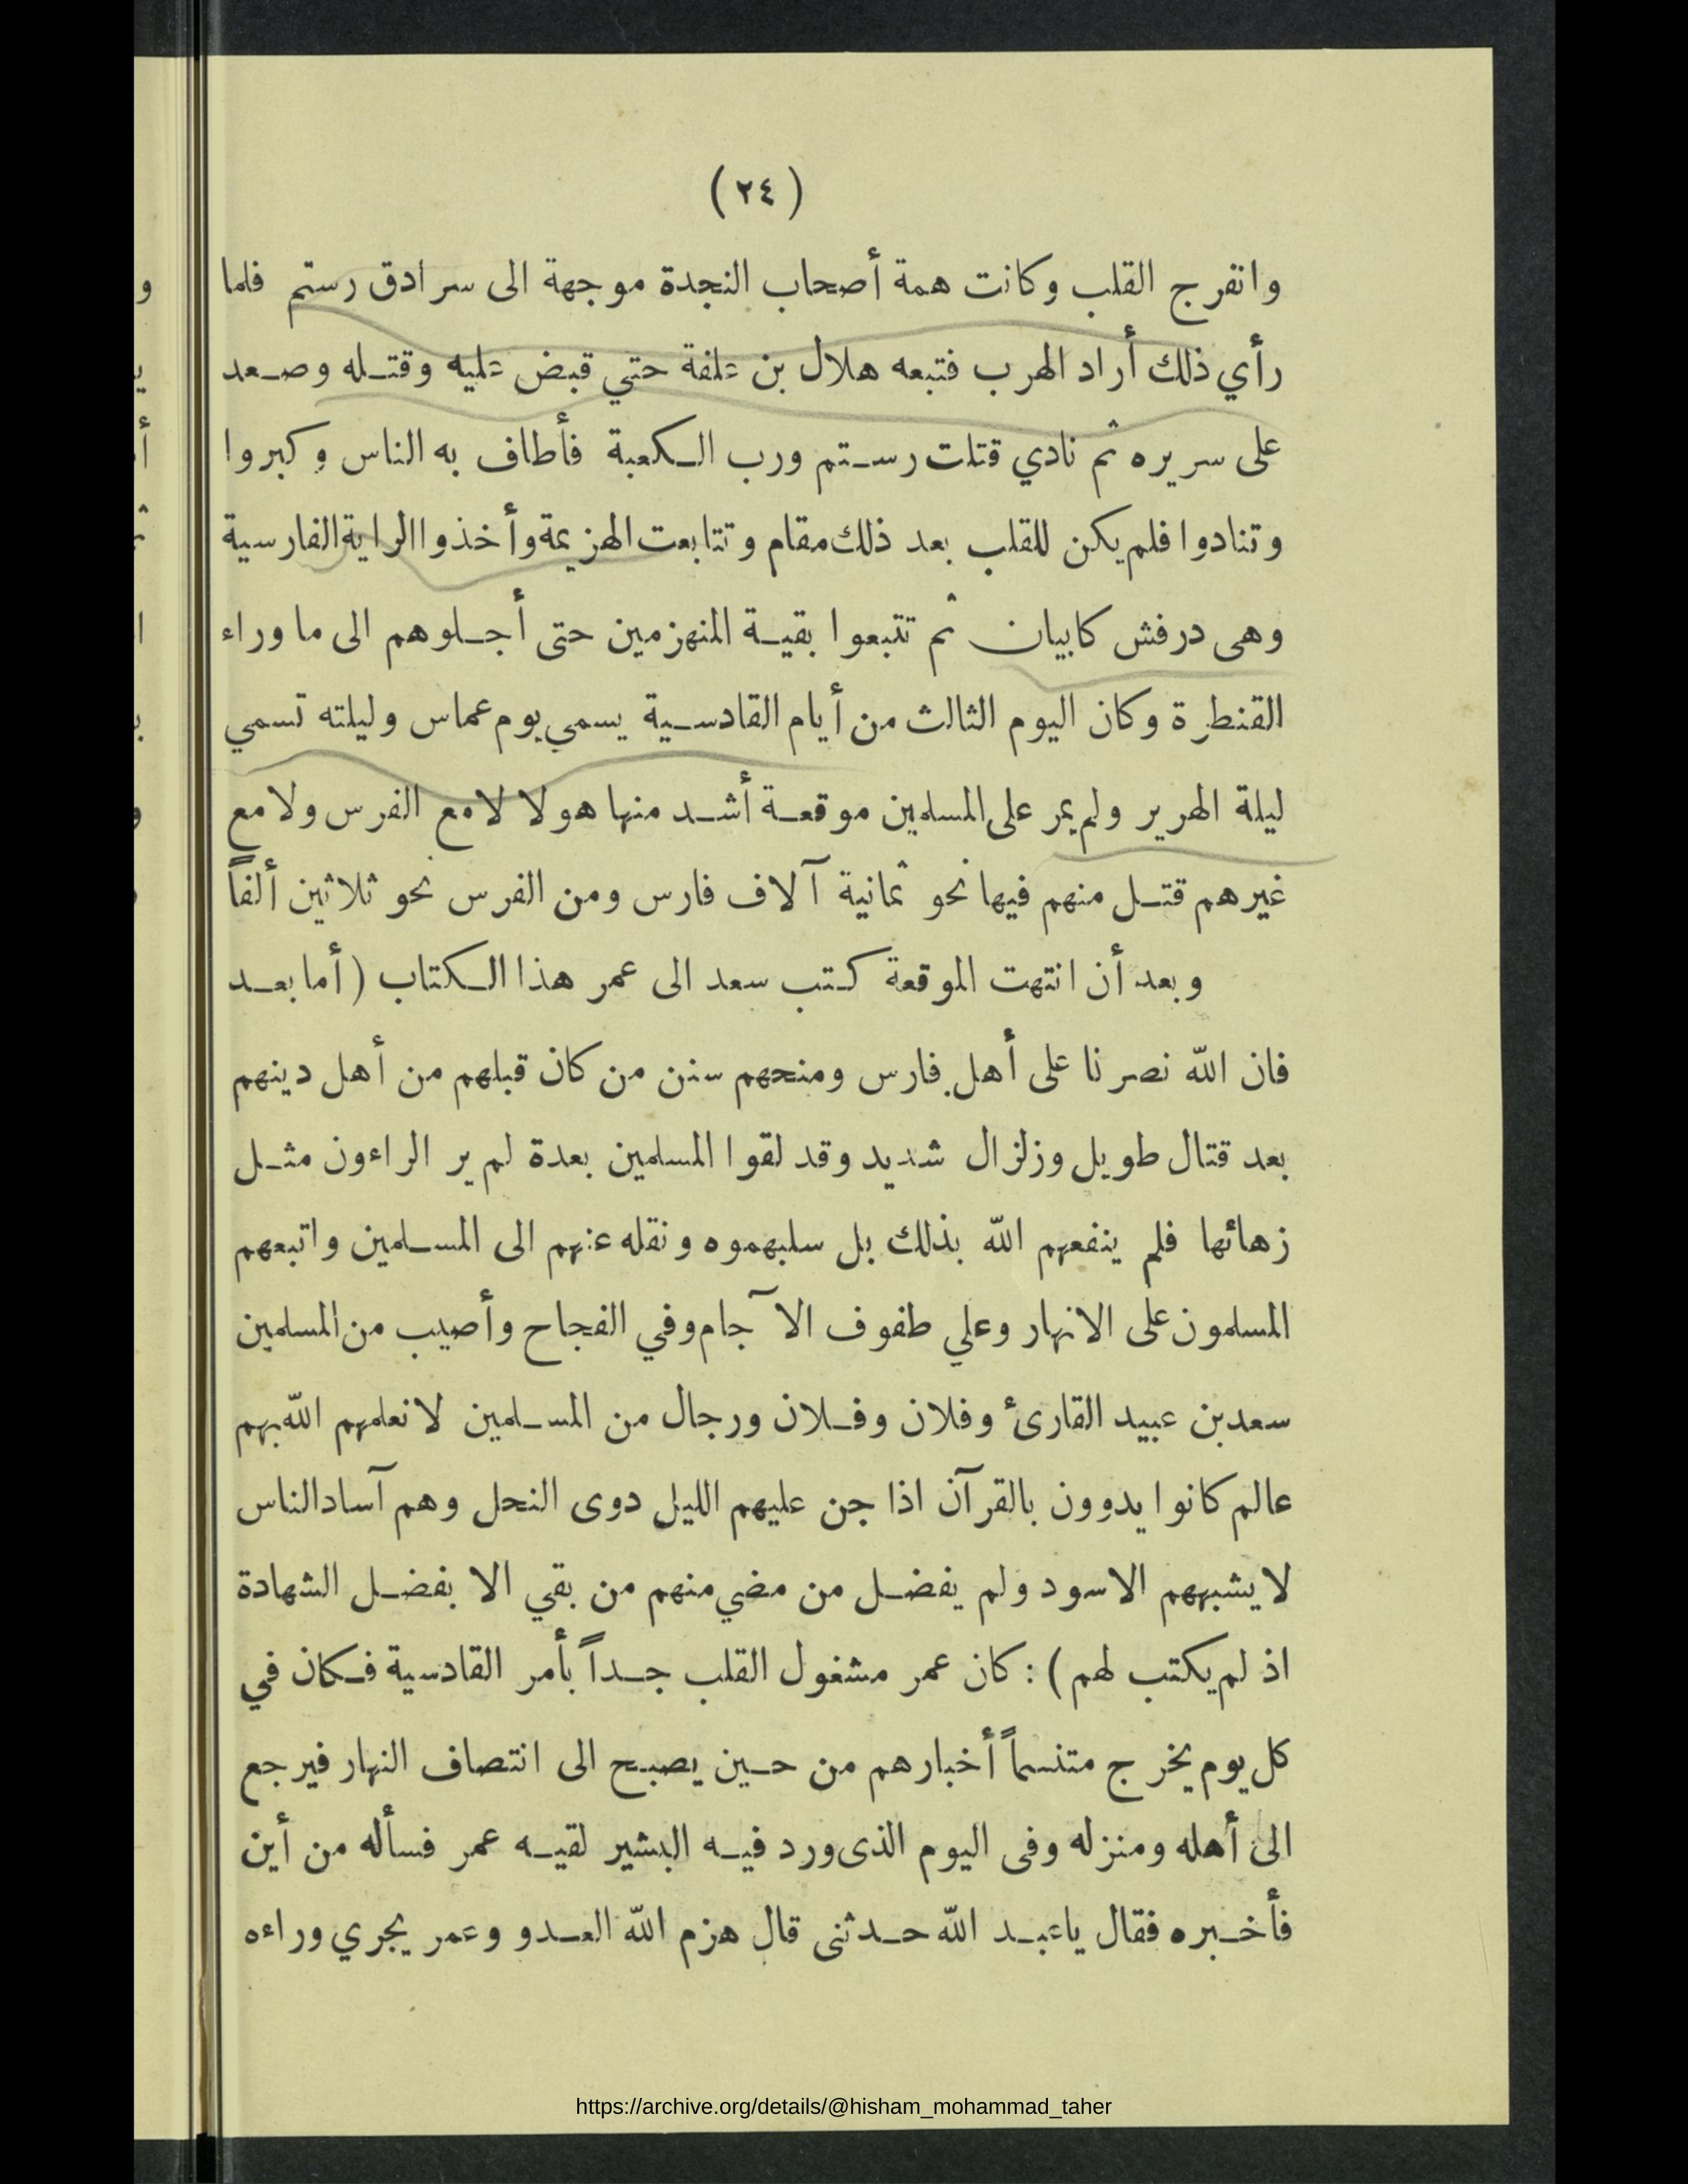 (٢٤)
وانفرج القلب وكانت همة أصحاب النجدة موجهة الى سرادق رستم فلما
رأي ذلك أراد الهرب فتبعه هلال بن علفة حتي قبض عليه وقتله وصعد
على سريره ثم نادي قتلت رستم ورب الكعبة فأطاف به الناس وكبروا
وتنادوا فلم يكن للقلب بعد ذلك مقام وتتابعت الهزيمة وأخذوا الراية الفارسية
وهى درفش كابيان ثم تتبعوا بقية المنهزمين حتى أجلوهم الى ما وراء
القنطرة وكان اليوم الثالث من أيام القادسية يسمي يوم عماس وليلته تسمي
ليلة الهرير ولم يمر على المسلمين موقعة أشد منها هولا لا مع الفرس ولا مع
غيرهم قتل منهم فيها نحو ثمانية آلاف فارس ومن الفرس نحو ثلاثين ألفاً
وبعد أن انتهت الموقعة كتب سعد الى عمر هذا الكتاب (أما بعد
فان الله نصرنا على أهل فارس ومنحهم سنن من كان قبلهم من أهل دينهم
بعد قتال طويل وزلزال شديد وقد لقوا المسلمين بعدة لم ير الراءون مثل
زهائها فلم ينفعهم الله بذلك بل سلبهموه ونقله عنهم الى المسلمين واتبعهم
المسلمون على الانهار وعلي طفوف الآجام وفي الفجاح وأصيب من المسلمين
سعد بن عبيد القارئ وفلان وفلان ورجال من المسلمين لا نعلمهم الله بهم
عالم كانوا يدوون بالقرآن اذا جن عليهم الليل دوى النحل وهم آساد الناس
لا يشبههم الاسود ولم يفضل من مضي منهم من بقي الا بفضل الشهادة
اذ لم يكتب لهم) : كان عمر مشغول القلب جداً بأمر القادسية فكان في
كل يوم يخرج متنسماً أخبارهم من حين يصبح الى انتصاف النهار فيرجع
الى أهله ومنزله وفى اليوم الذى ورد فيه البشير لقيه عمر فسأله من أين
فأخبره فقال ياعبد الله حدثنى قال هزم الله العدو وعمر يجري وراءه
https://archive.org/details/@hisham_mohammad_taher